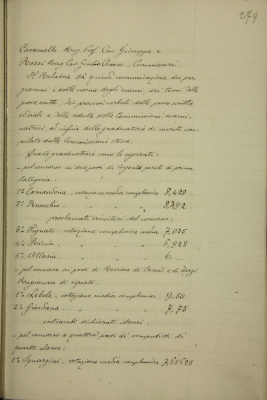 279
Caramelli Rag. Prof. Cav. Giuseppe e
Rossi Rag. Cav. Giulio Cesare, Commissari.
Il Relatore dà quindi comunicazione dei pro-
grammi e delle norme degli esami, dei temi delle
prove scritte, dei processi verbali delle prove scritte,
orali e delle sedute delle Commissioni esami-
natrici, ed infine delle graduatorie di merito com-
pilate dalle Commissioni stesse.
graduatorie sono le seguenti:
pel concorso ai due posti di Segreto capi di prima
categoria:
1° Camandona, votazione media complessiva 8,420
2° Pinocchio, " " " 8,392
proclamati vincitori del concorso.
3° Pignata, votazione complessiva media 7,035
4° " " " 6,928
5° Allasia " " " 6.
pel concorso ai posti di Ragioniere di Cassa e di
Ragioniere di reparto:
1° votazione media complessiva 9.50
2° Giordana, " " " 7.75
entrambi dichiarati idonei.
pel concorso a quattro posti di computisti di
quarta classe:
1° votazione media complessiva 7,65625